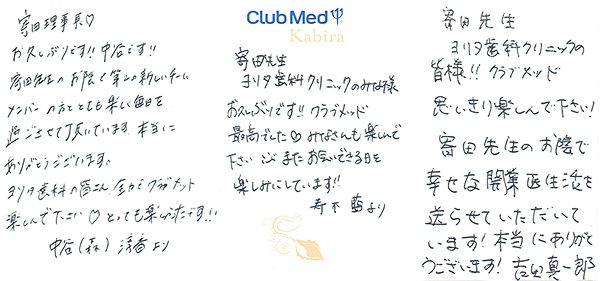 寄田理事長♡
お久しぶりです!! 中谷です!!
寄田先生のお陰で第二の新しいチーム
メンバーの方ととても楽しく毎日を
過ごさせて頂いています。本当に
ありがとうございます。
ヨリタ歯科の皆さん、全力でクラブメッド
楽しんで下さい♡とっても楽しかったです!!
中谷(森)淳香より
Club Med
Kabira
寄田先生
ヨリタ歯科クリニックのみな様
お久しぶりです!! クラブメッド
最高でした♡みなさんも楽しんで
下さい またお会いできる日を
楽しみにしています!!
より
寄田先生
ヨリタ歯科クリニックの
皆様!! クラブメッド
思いきり楽しんで下さい!
寄田先生のお陰で
幸せな開業医生活を
送らせていただいて
います!本当にありがと
うございます! 吉田真一郎